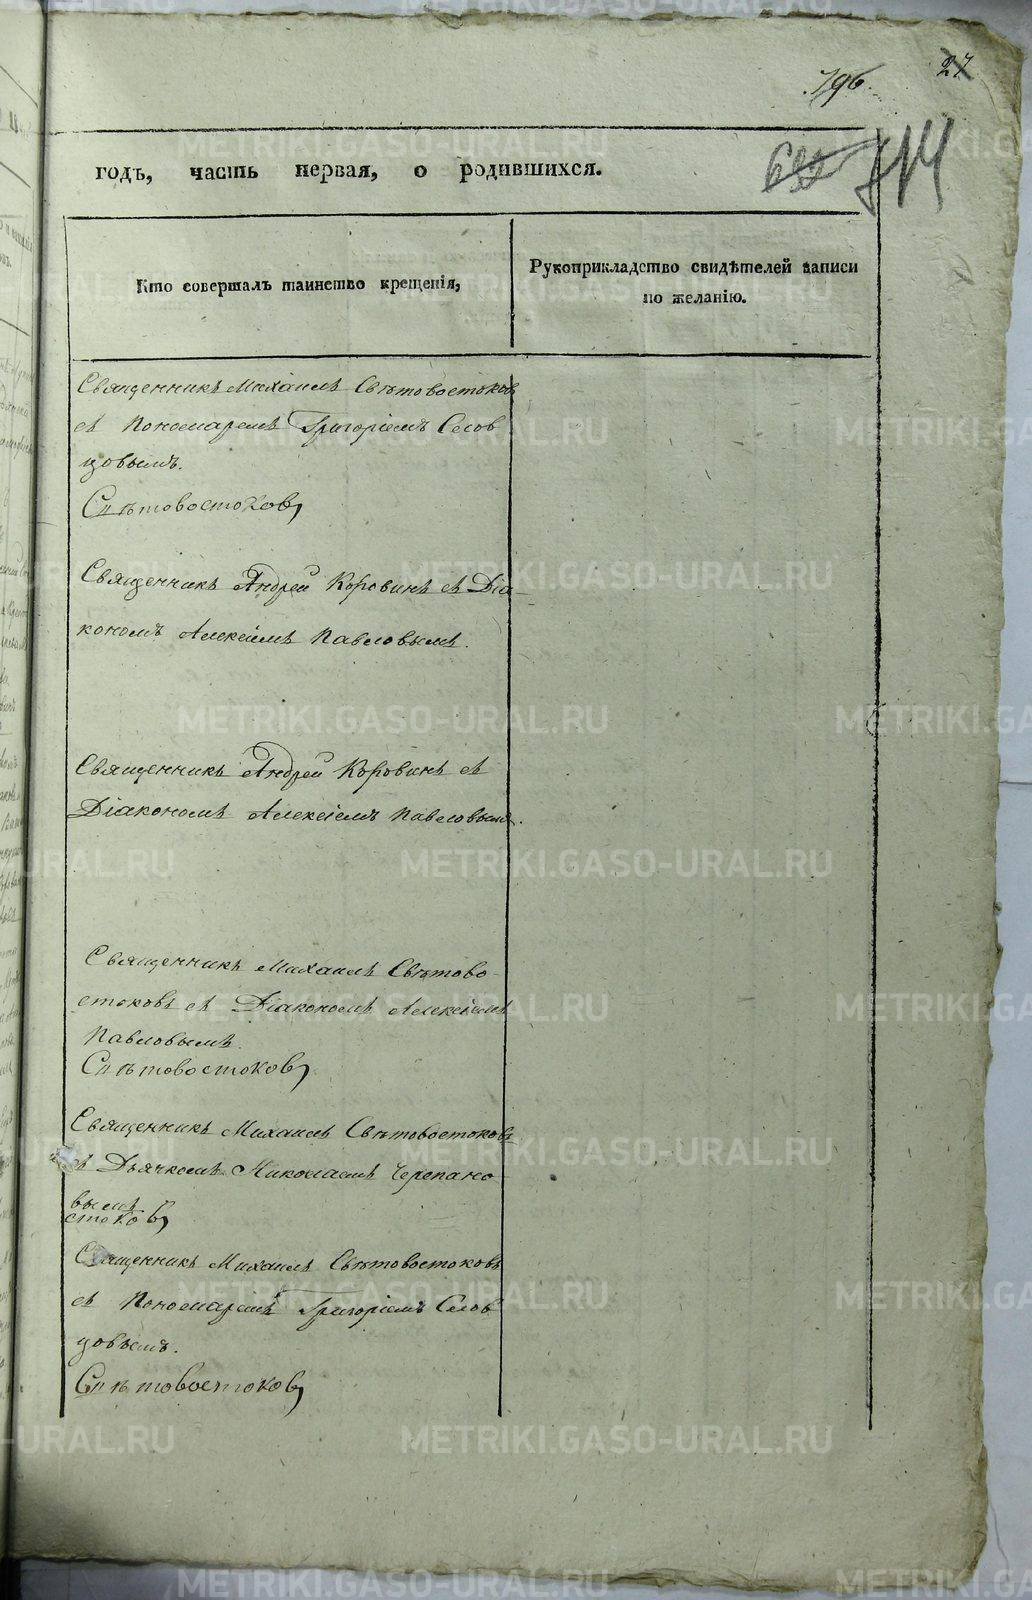 27
196.
632
714
годъ, часть первая, о родившихся.
Кто совершалъ таинство крещенія,
Рукоприкладство свидѣтелей записи
по желанію.
Священникъ Михаилъ Свѣтовостоков
съ Пономаремъ Григоріемъ Слов
цовымъ.
Свѣтовостоковъ
Священникъ Андрей Коровинъ съ Діа-
кономъ Алексіемъ Павловымъ.
Священникъ Андрей Коровинъ съ
Діакономъ Алексіемъ Павловымъ.
Священникъ Михаилъ Свѣтово-
стоковъ съ Діакономъ Алексіемъ
Павловымъ.
Свѣтовостоковъ
Священникъ Михаилъ Свѣтовостоковъ
съ Дьячкомъ Николаемъ Черепано-
вымъ
стоковъ
Священникъ Михаилъ Свѣтовостоковъ
съ Пономаремъ Григоріемъ Слов
цовымъ.
Свѣтовостоковъ
METRIKI.GASO-URAL.RU